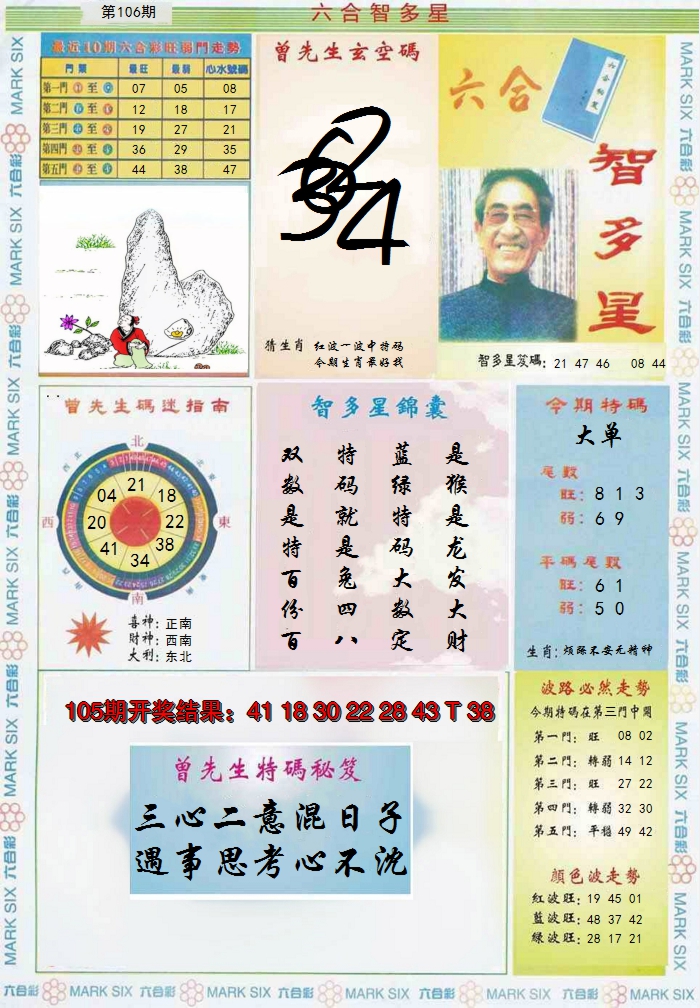 第106期
六合智多星
最近10期六合彩旺弱門走勢
門類 最旺 最弱 心水號碼
第一門 至 07 05 08
第二門 至 12 18 17
第三門 至 19 27 21
第四門 至 36 29 35
第五門 至 44 38 47
曾先生玄空碼
猜生肖 红波一波中特码
今期生肖最好找
六合
智多星
智多星笈碼: 21 47 46 08 44
曾先生碼迷指南
北
東
南
西
21
18
22
38
34
41
20
04
喜神: 正南
財神: 西南
大利: 东北
智多星錦囊
双数是特百份百
特码就是兔四八
蓝绿特码大数定
是猴是龙发大财
今期特碼
大单
尾數
旺: 8 1 3
弱: 6 9
平碼尾數
旺: 6 1
弱: 5 0
生肖: 烦躁不安无精神
105期开奖结果: 41 18 30 22 28 43 T 38
曾先生特碼秘笈
三心二意混日子
遇事思考心不沈
波路必然走勢
今期特碼在第三門中開
第一門: 旺 08 02
第二門: 轉弱 14 12
第三門: 旺 27 22
第四門: 轉弱 32 30
第五門: 平穩 49 42
顏色波走勢
红波旺: 19 45 01
藍波旺: 48 37 42
绿波旺: 28 17 21
MARK SIX 六合彩